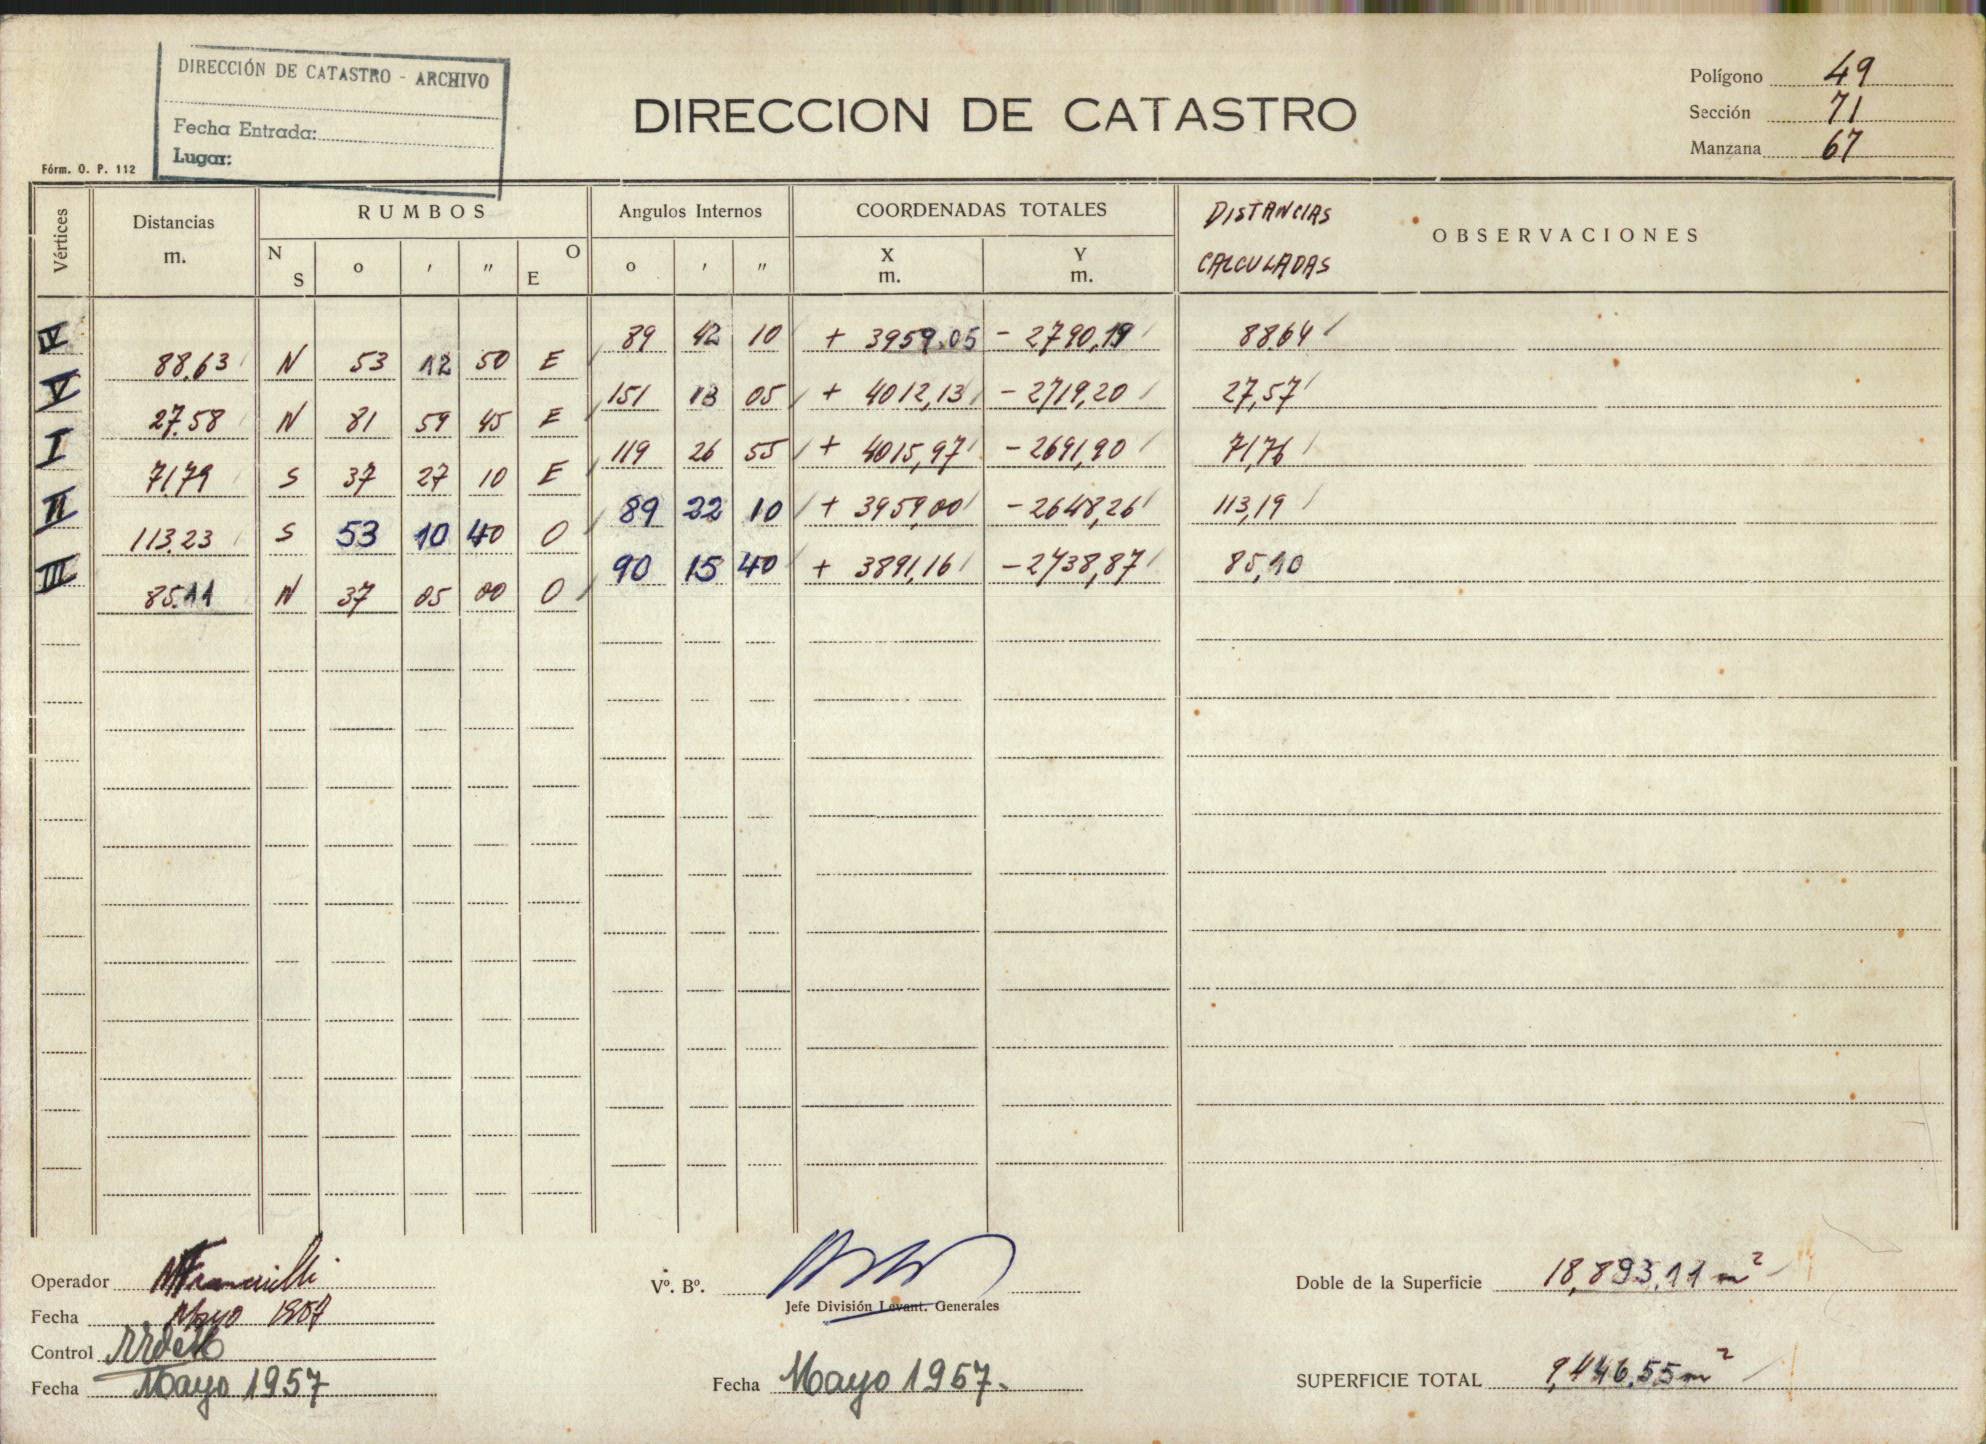 DIRECCIÓN DE CATASTRO - ARCHIVO
Fecha Entrada:
Lugar:
Fórm. O. P. 112
DIRECCION DE CATASTRO
Polígono 49
Sección 71
Manzana 67
Vértices Distancias m. RUMBOS Angulos Internos COORDENADAS TOTALES DISTANCIAS CALCULADAS OBSERVACIONES
N S o ' " O E o ' " X m. Y m.
IV 89 42 10 + 3959.05 - 2790,19 88.64
88.63 N 53 12 50 E
V 151 13 05 + 4012,13 - 2719,20 27,57
27.58 N 81 59 45 E
I 119 26 55 + 4015,97 - 2691,90 71,76
71.79 S 37 27 10 E
II 89 22 10 + 3959,00 - 2648,26 113,19
113.23 S 53 10 40 O
III 90 15 40 + 3891,16 - 2738,87 85,10
85.11 N 37 05 00 O
Operador
Fecha Mayo 1957
Control
Fecha Mayo 1957
Vº. Bº.
Jefe División Levant. Generales
Fecha Mayo 1957.
Doble de la Superficie 18,893,11 m²
SUPERFICIE TOTAL 9,446.55 m²